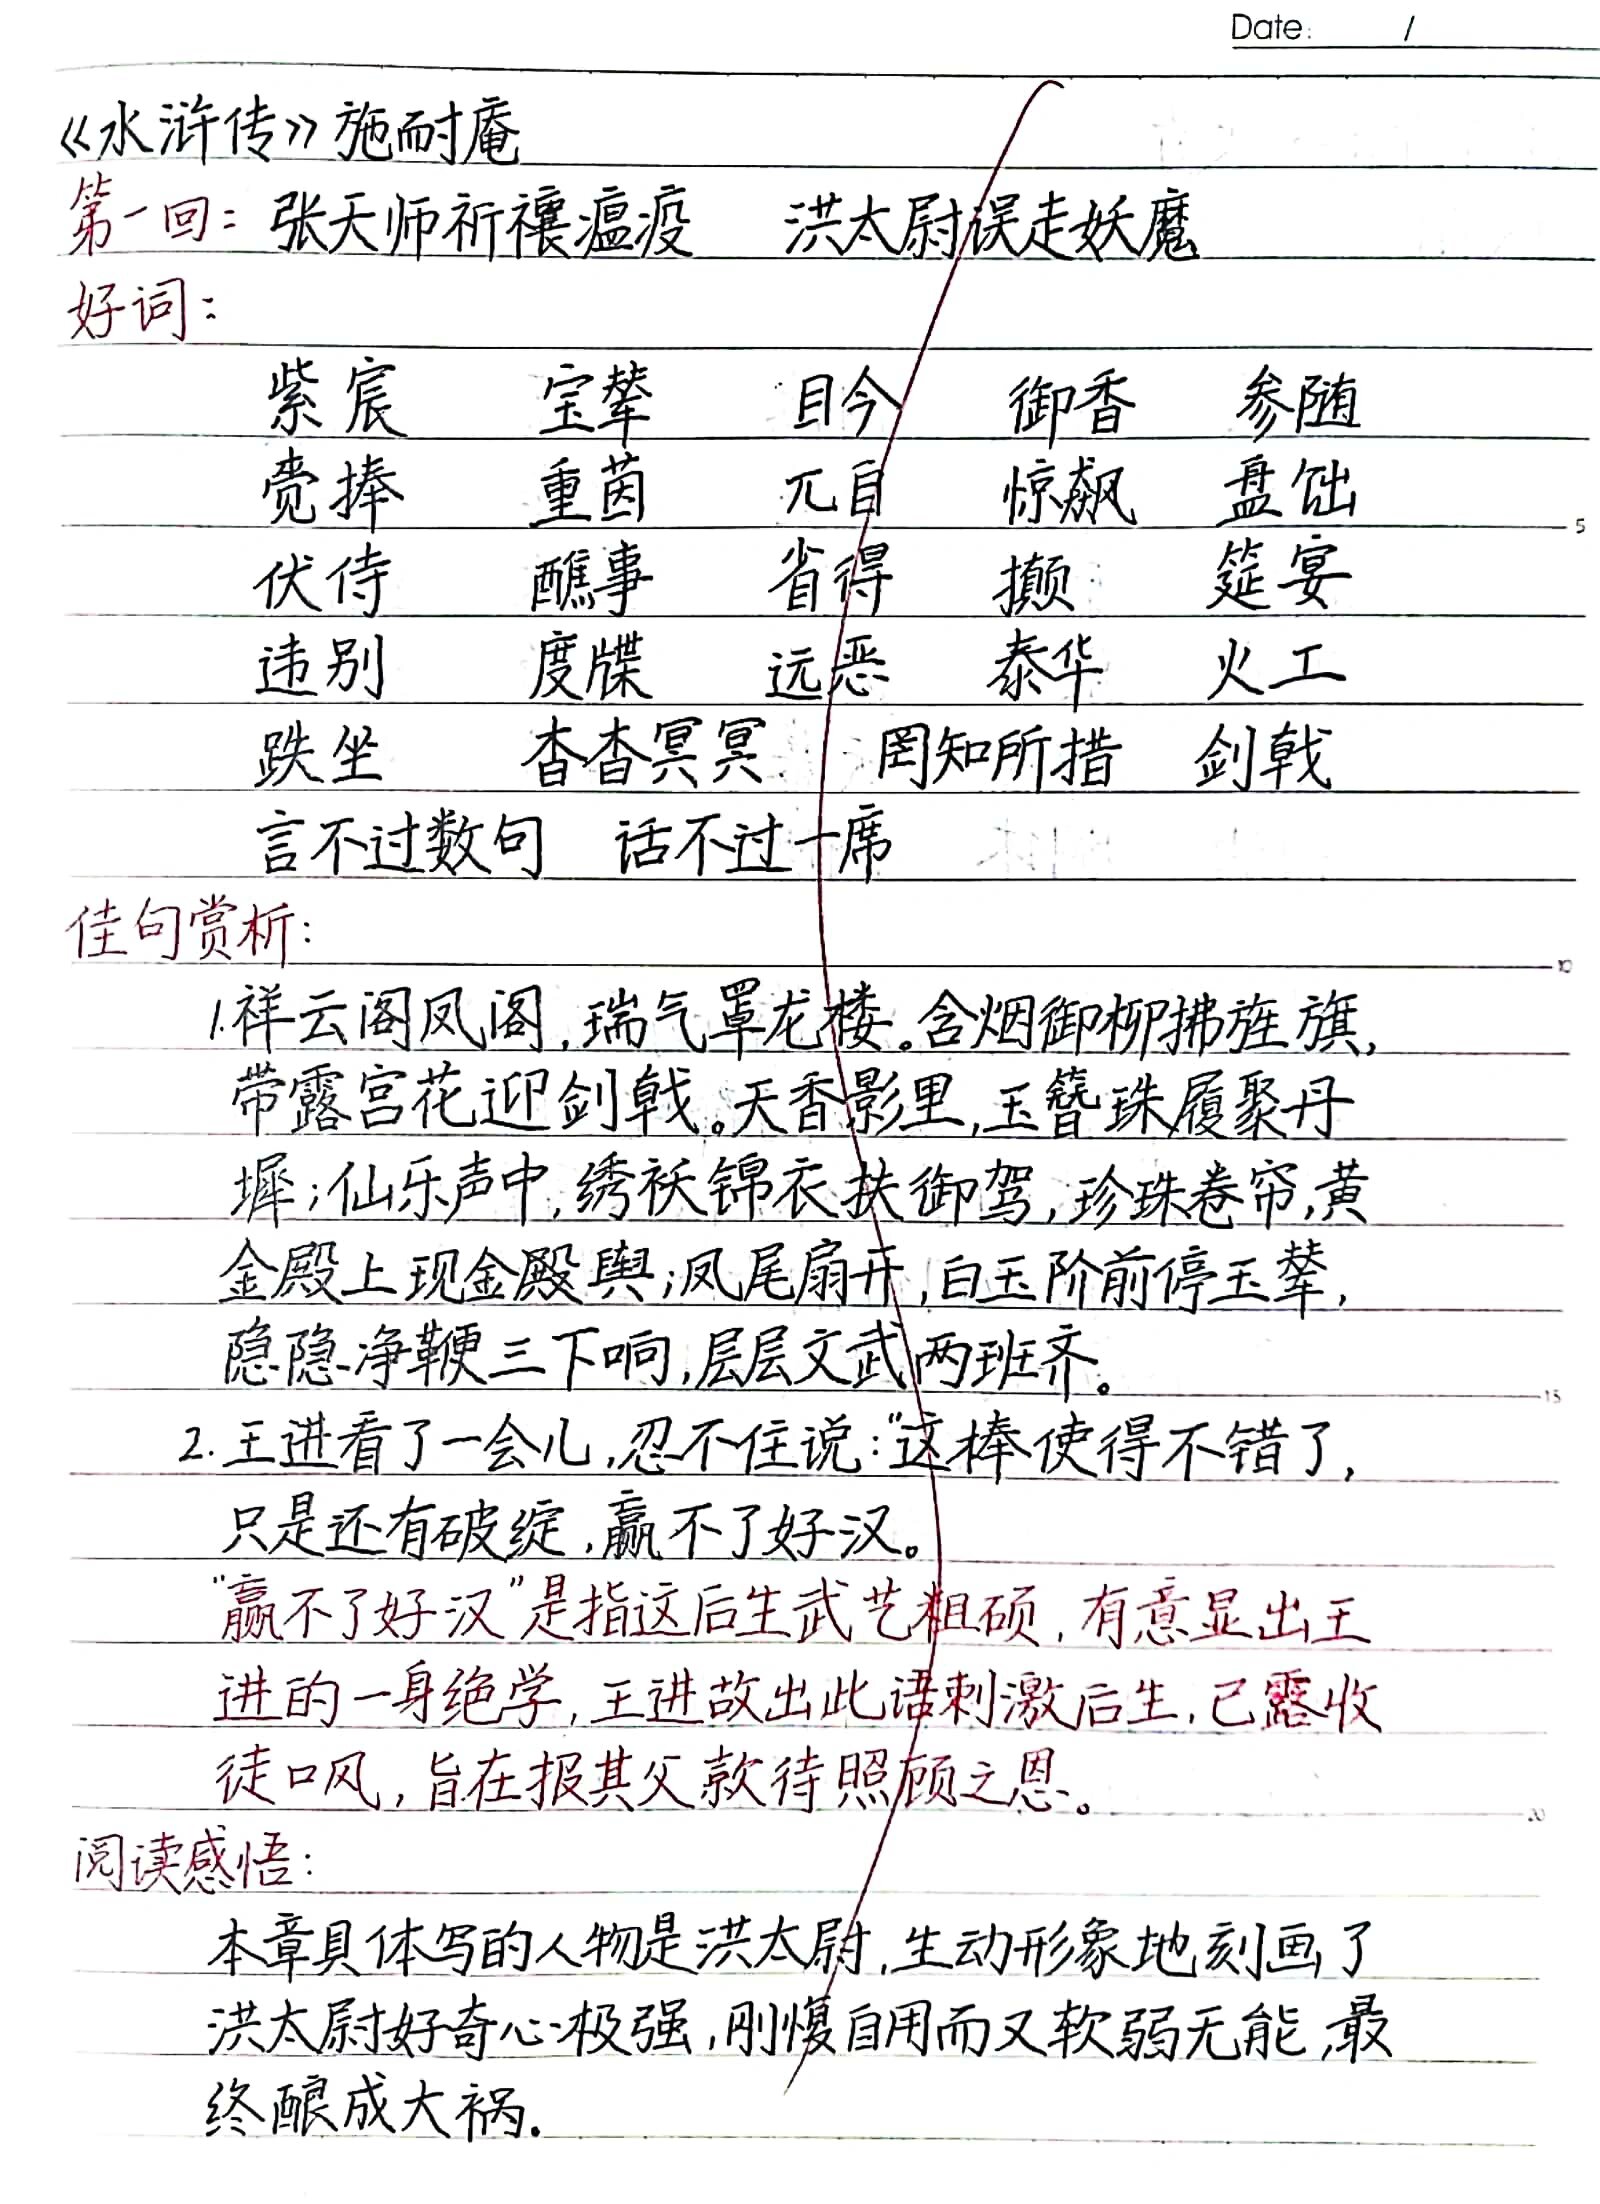 Date: /
《水浒传》施耐庵
第一回：张天师祈禳瘟疫 洪太尉误走妖魔
好词：
紫宸 宝辇 目今 御香 参随
赍捧 重茵 兀自 惊飙 盘饳
伏侍 醮事 省得 攧 筵宴
违别 度牒 远恶 泰华 火工
跌坐 杳杳冥冥 罔知所措 剑戟
言不过数句 话不过一席
5
佳句赏析：
10
1.祥云阁凤阁,瑞气罩龙楼。含烟御柳拂旌旗,
带露宫花迎剑戟。天香影里,玉簪珠履聚丹
墀;仙乐声中,绣袄锦衣扶御驾,珍珠卷帘,黄
金殿上现金殿舆;凤尾扇开,白玉阶前停玉辇,
隐隐净鞭三下响,层层文武两班齐。
15
2.王进看了一会儿,忍不住说:“这棒使得不错了,
只是还有破绽,赢不了好汉。
“赢不了好汉”是指这后生武艺粗硕,有意显出王
进的一身绝学,王进故出此语刺激后生,已露收
徒口风,旨在报其父款待照顾之恩。
20
阅读感悟:
本章具体写的人物是洪太尉,生动形象地刻画了
洪太尉好奇心极强,刚愎自用而又软弱无能,最
终酿成大祸.